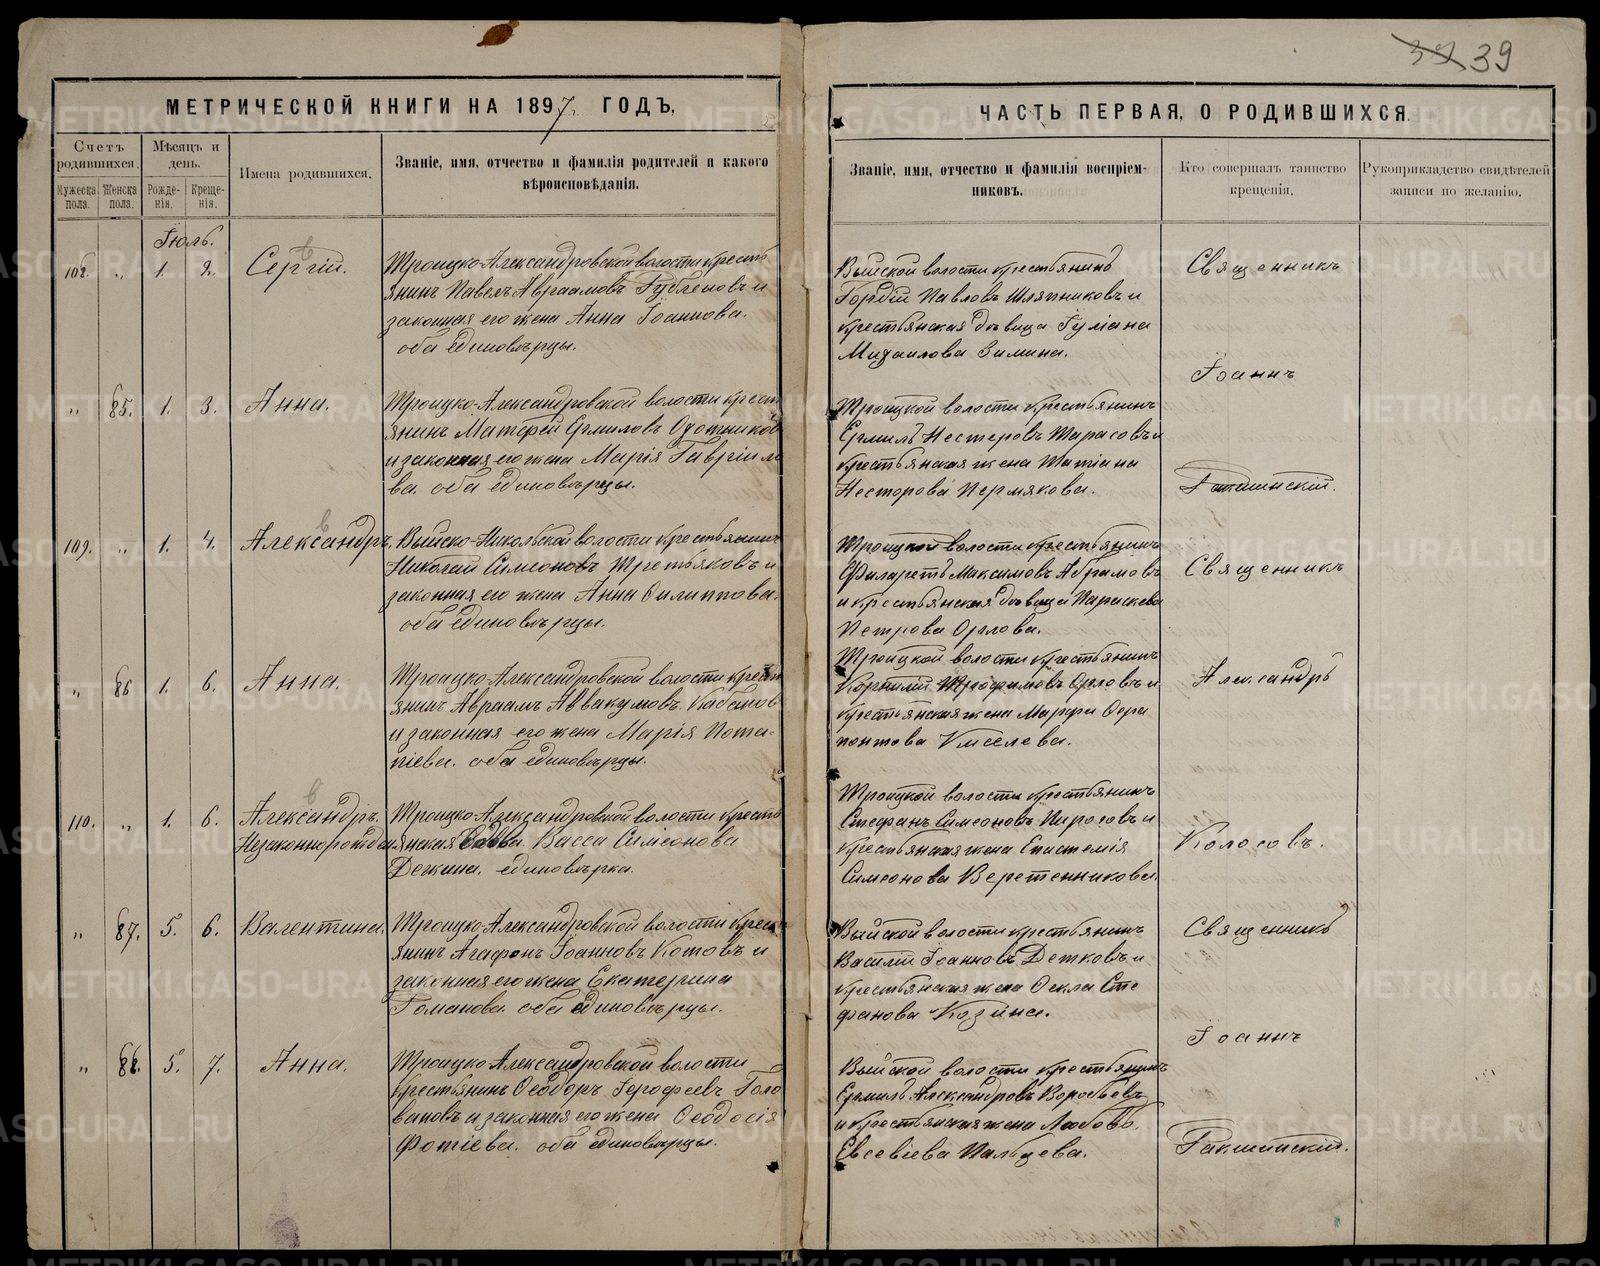 39
МЕТРИЧЕСКОЙ КНИГИ НА 1897 ГОДЪ,
Счетъ родившихся.
Мѣсяцъ и день.
Имена родившихся.
Званіе, имя, отчество и фамилія родителей и какого вѣроисповѣданія.
Мужеска пола.
Женска пола.
Рожде-нія.
Креще-нія.
Іюль.
108. " 1. 2. Сергій.
Троицко-Александровской волости кресть
янинъ Павелъ Авраамовъ и
законная его жена Анна Іоаннова.
оба единовѣрцы.
" 85. 1. 3. Анна.
Троицко-Александровской волости крест
янинъ Матфей Ермиловъ Охотников
и законная его жена Марія Гавріило
ва. оба единовѣрцы.
109. " 1. 4. Александръ.
Выйско-Никольской волости крестьянинъ
Николай Симеоновъ Третьяковъ и
законная его жена Анна Филиппова.
оба единовѣрцы.
" 86 1. 6. Анна.
Троицко-Александровской волости крест
янинъ Авраамъ Аввакумовъ Кабанов
и законная его жена Марія Пота-
піева. оба единовѣрцы.
110. " 1. 6. Александръ.
Незаконнорожден
Троицко-Александровской волости кресть
янская Васса Симеонова
единовѣрка.
" 87. 5. 6. Валентина.
Троицко-Александровской волости крест
янинъ Агафонъ Іоанновъ Котовъ и
законная его жена Екатерина
Романова. оба единовѣрцы.
" 88. 5. 7. Анна.
Троицко-Александровской волости
крестьянинъ Ѳеодоръ Іерофеевъ Голо
вановъ и законная его жена Ѳеодосія
Фотіева. оба единовѣрцы.
ЧАСТЬ ПЕРВАЯ, О РОДИВШИХСЯ.
Званіе, имя, отчество и фамилія воспріем-никовъ.
Кто совершалъ таинство крещенія.
Рукоприкладство свидѣтелей записи по желанію.
Выйской волости крестьянинъ
Гордій Павловъ Шляпниковъ и
крестьянская дѣвица Іуліана
Михаилова Зимина.
Троицкой волости крестьянинъ
Ермилъ Нестеровъ Тарасовъ и
крестьянская жена Татіана
Несторова Пермякова.
Троицкой волости крестьянинъ
Филаретъ Максимовъ Абрамовъ
и крестьянская дѣвица Параскева
Петрова Орлова.
Троицкой волости крестьянинъ
Корнилій Трофимовъ Орловъ и
крестьянская жена Марфа Ѳера
понтова Киселева.
Троицкой волости крестьянинъ
Стефанъ Симеоновъ Пироговъ и
крестьянская жена Епистемія
Симеонова Веретенникова.
Выйской волости крестьянинъ
Василій Іоанновъ Детковъ и
крестьянская жена Ѳекла Сте
фанова Козина.
Выйской волости крестьянинъ
Ермилъ Александровъ Воробьевъ
и крестьянская жена Любовь
Евсевіева Пальцева.
Священникъ
Іоаннъ
Священникъ
Александръ
Колосовъ.
Священникъ
Іоаннъ
METRIKI.GASO-URAL.RU